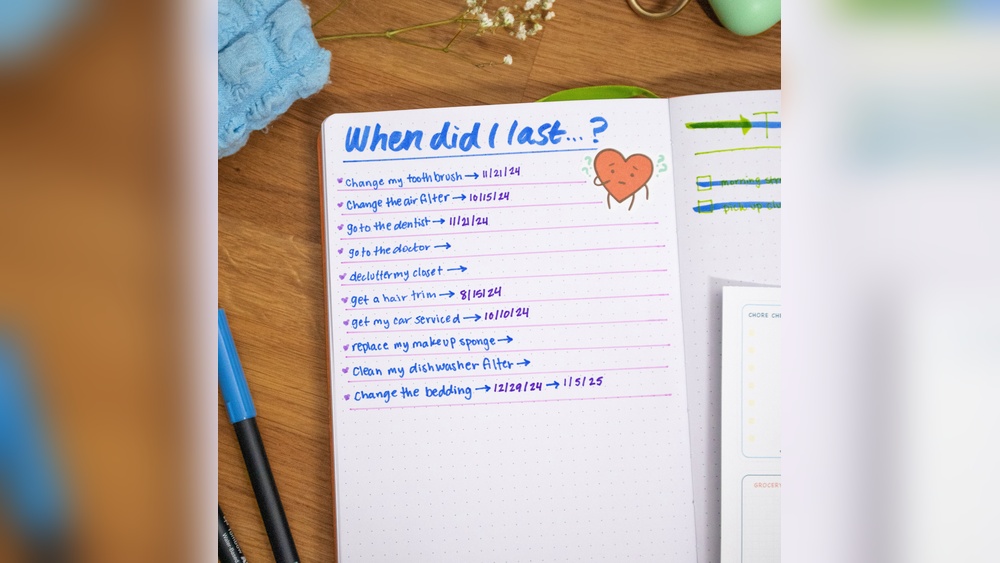 When did I last...?
Change my toothbrush → 11/21/24
Change the air filter → 10/15/24
go to the dentist → 11/21/24
go to the doctor →
declutter my closet →
get a hair trim → 8/15/24
get my car serviced → 10/10/24
replace my makeup sponge →
Clean my dishwasher filter →
Change the bedding → 12/29/24 → 1/5/25
morning
pick up
CHORE
GROCERY